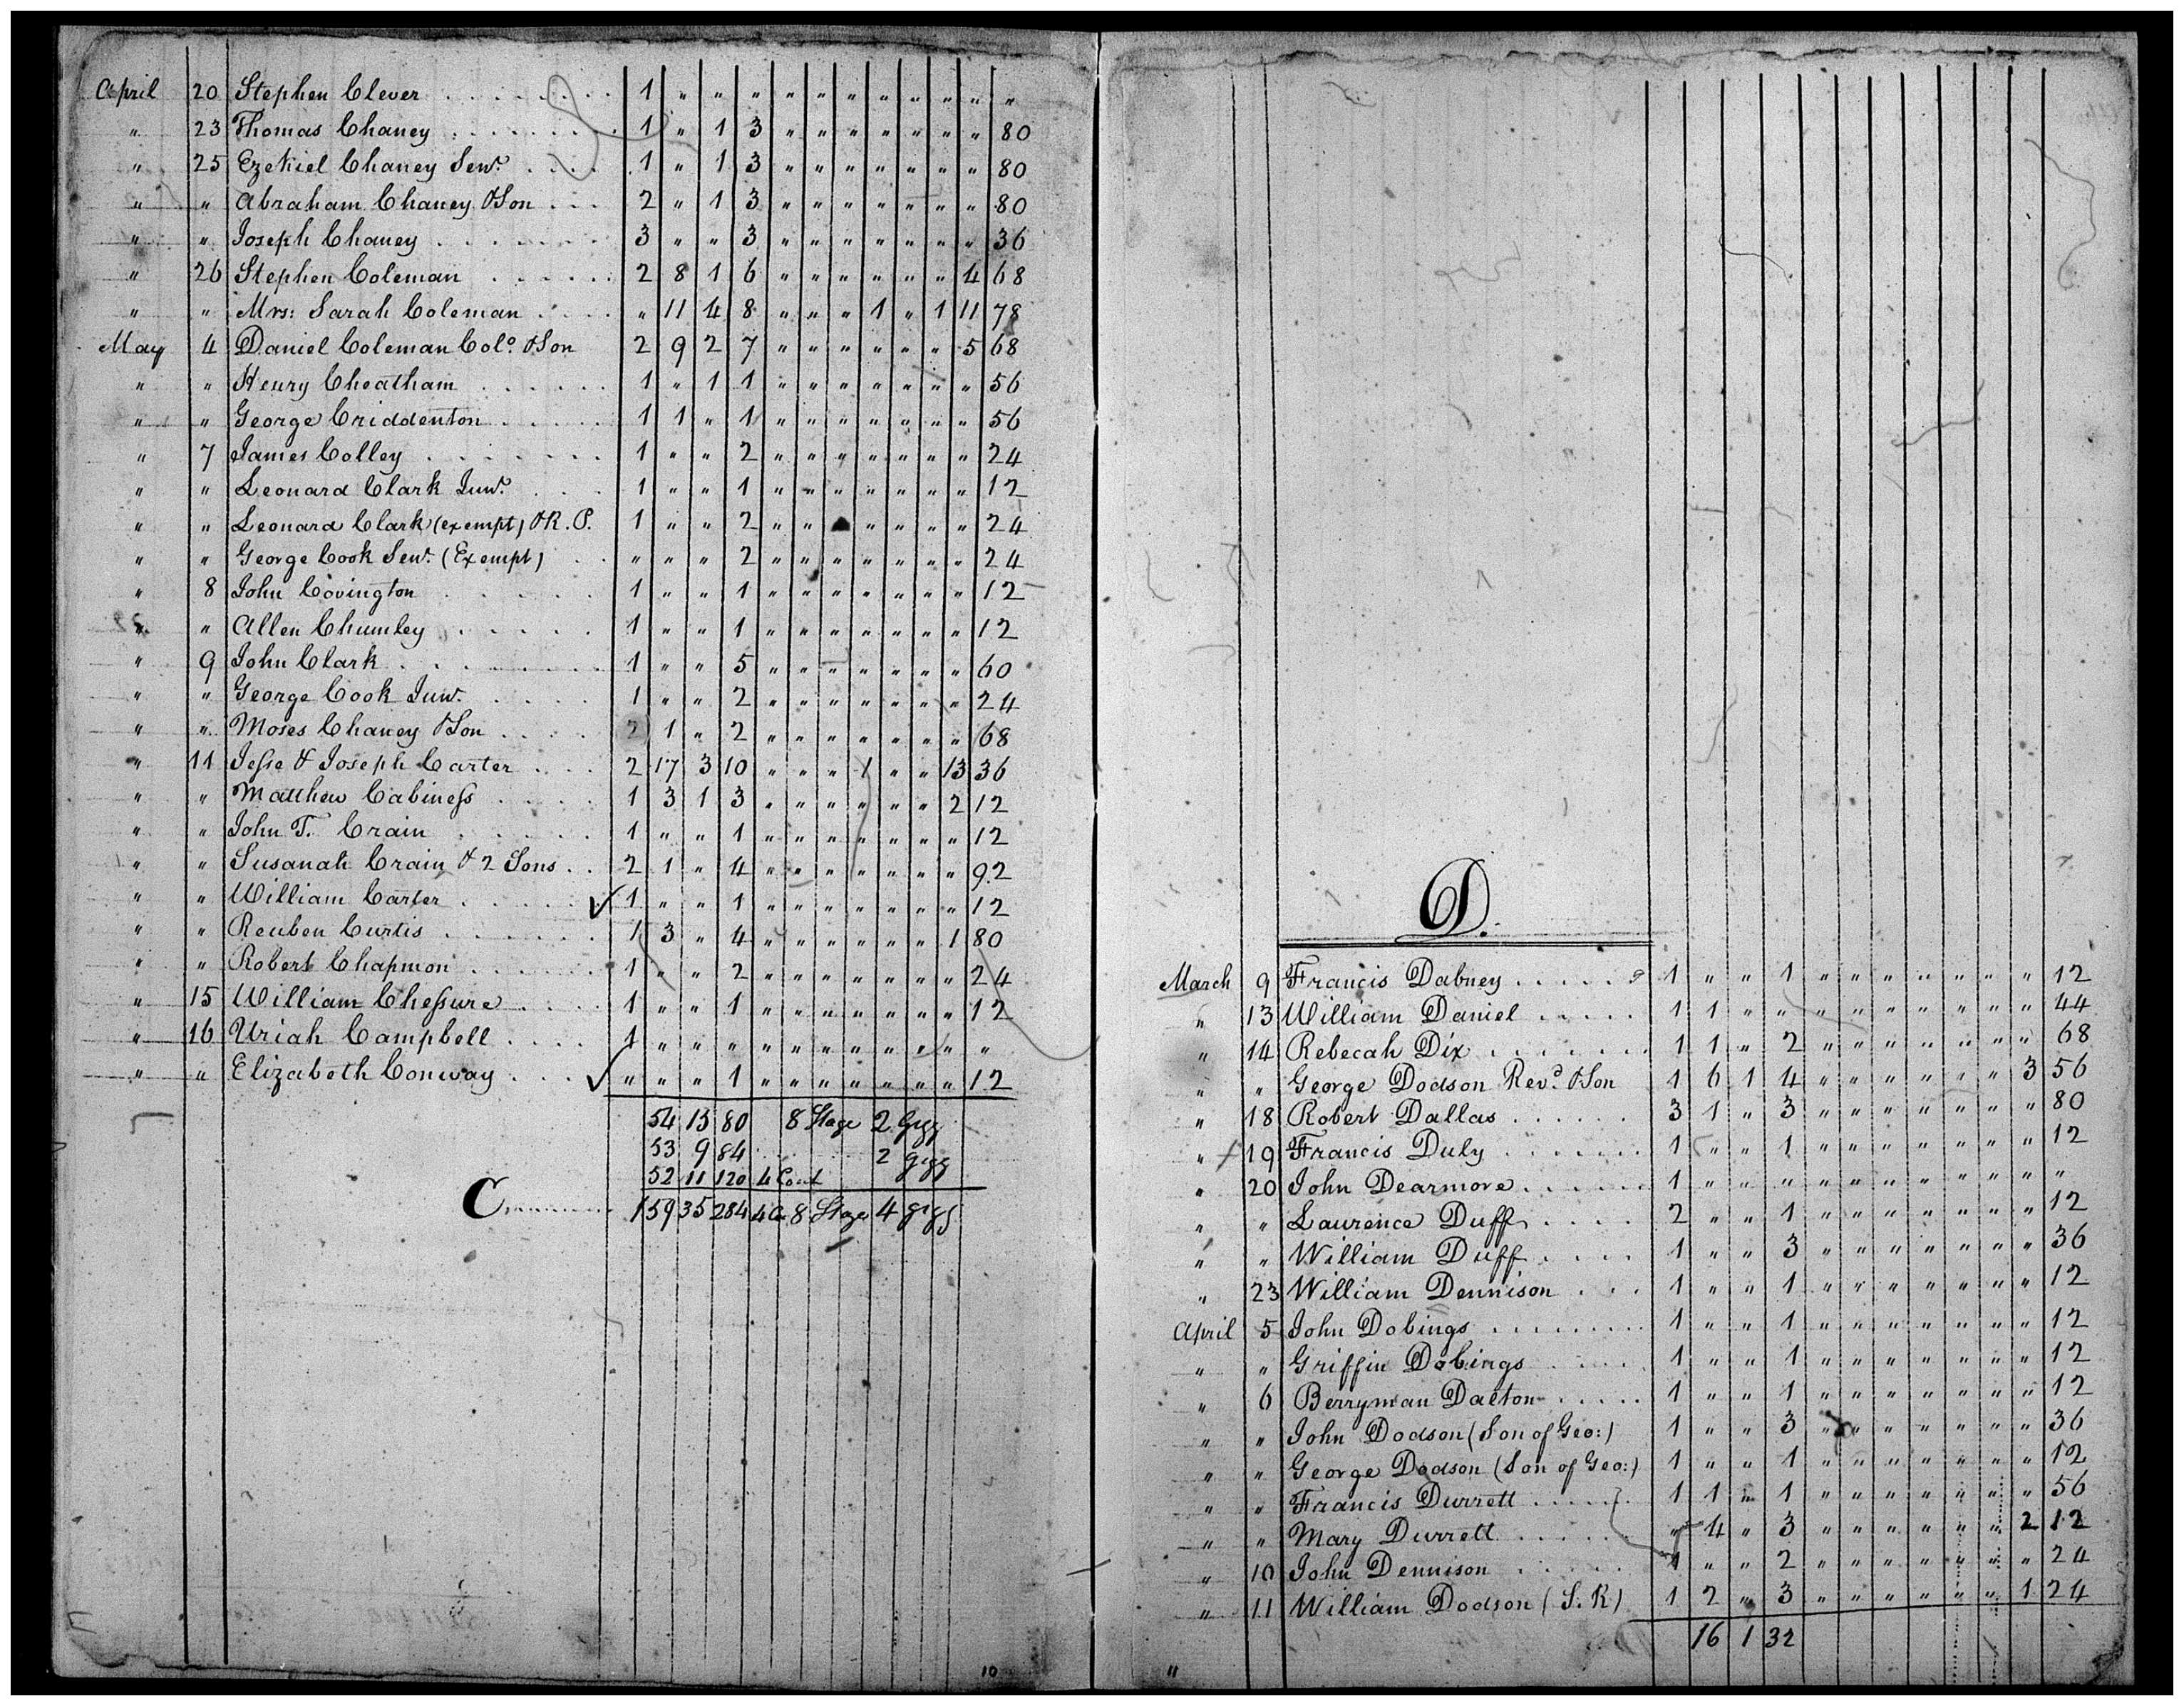 April 20 Stephen Clever . . . . . . . . 1 " " " " " " " " " " "
" 23 Thomas Chaney . . . . . . . . 1 " 1 3 " " " " " " " 80
" 25 Ezekiel Chaney Senr. . . . . 1 " 1 3 " " " " " " " 80
" " Abraham Chaney &Son . . . 2 " 1 3 " " " " " " " 80
" " Joseph Chaney . . . . . . . 3 " " 3 " " " " " " " 36
" 26 Stephen Coleman . . . . . . 2 8 1 6 " " " " " " 4 68
" " Mrs: Sarah Coleman . . . . " 11 4 8 " " " 1 " 1 11 78
May 4 Daniel Coleman Colo. &Son 2 9 2 7 " " " " " " 5 68
" " Henry Cheatham . . . . . . 1 " 1 1 " " " " " " " 56
" " George Criddenton . . . . . 1 1 " 1 " " " " " " " 56
" 7 James Colley . . . . . . . 1 " " 2 " " " " " " " 24
" " Leonard Clark Junr. . . . 1 " " 1 " " " " " " " 12
" " Leonard Clark (exempt) &R. P. 1 " " 2 " " " " " " " 24
" " George Cook Senr. (Exempt) . . " " " 2 " " " " " " " 24
" 8 John Covington . . . . . 1 " " 1 " " " " " " " 12
" " Allen Chumley . . . . . 1 " " 1 " " " " " " " 12
" 9 John Clark . . . . . . . 1 " " 5 " " " " " " " 60
" " George Cook Junr. . . . . 1 " " 2 " " " " " " " 24
" " Moses Chaney &Son . . . . 2 1 " 2 " " " " " " " 68
" 11 Jesse & Joseph Carter . . . 2 17 3 10 " " " 1 " " 13 36
" " Matthew Cabiness . . . . 1 3 1 3 " " " " " " 2 12
" " John T. Crain . . . . . 1 " " 1 " " " " " " " 12
" " Susanah Crain & 2 Sons . . 2 1 " 4 " " " " " " " 92
" " William Carter . . . . . ✓ 1 " " 1 " " " " " " " 12
" " Reuben Curtis . . . . . . 1 3 " 4 " " " " " " 1 80
" " Robert Chapmon . . . . . . 1 " " 2 " " " " " " " 24
" 15 William Chessure . . . . 1 " " 1 " " " " " " " 12
" 16 Uriah Campbell . . . . 1 " " " " " " " " " " "
" " Elizabeth Conway . . . ✓ " " " 1 " " " " " " " 12
54 13 80 8 Stage 2 Gigg
53 9 84 2 gigg
52 11 120 4
C 159 35 284 4 8 Stage 4 gigs
10
D.
March 9 Francis Dabney . . . . . 1 " " 1 " " " " " " " 12
" 13 William Daniel . . . . . 1 1 " " " " " " " " " 44
" 14 Rebecah Dix . . . . . . . 1 1 " 2 " " " " " " " 68
" " George Dodson Revd. &Son 1 6 1 4 " " " " " " 3 56
" 18 Robert Dallas . . . . . 3 1 " 3 " " " " " " " 80
" 19 Francis Duly . . . . . . . 1 " " 1 " " " " " " " 12
" 20 John Dearmore . . . . . 1 " " " " " " " " " " "
" " Laurence Duff . . . . 2 " " 1 " " " " " " " 12
" " William Duff . . . . 1 " " 3 " " " " " " " 36
" 23 William Dennison . . . 1 " " 1 " " " " " " " 12
April 5 John Dobings . . . . . . . . 1 " " 1 " " " " " " " 12
" " Griffin Dobings . . . . . 1 " " 1 " " " " " " " 12
" 6 Berryman Dalton . . . . . 1 " " 1 " " " " " " " 12
" " John Dodson (Son of Geo:) 1 " " 3 " " " " " " " 36
" " George Dodson (Son of Geo:) 1 " " 1 " " " " " " " 12
" " Francis Durrett . . . . . 1 1 " 1 " " " " " " " 56
" " Mary Durrett . . . . . " 4 " 3 " " " " " " 2 12
" 10 John Dennison . . . . . 1 " " 2 " " " " " " " 24
" 11 William Dodson (S. R) 1 2 " 3 " " " " " " 1 24
16 1 32
11